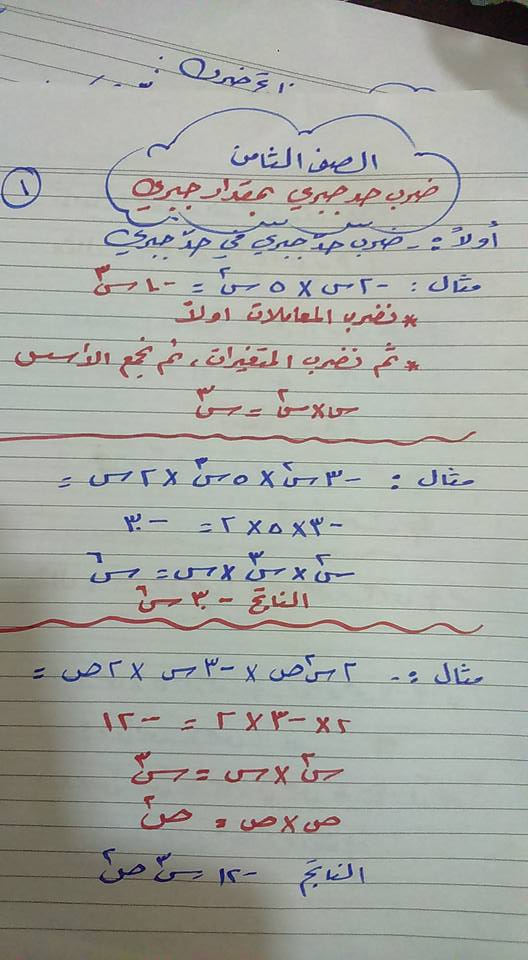 الصف الثامن
ضرب حد جبري بمقدار جبري
١
أولاً :- ضرب حدّ جبري في حدّ جبري
مثال : -٢س × ٥س٢ = -١٠س٣
* نضرب المعاملات اولاً
* ثم نضرب المتغيرات ، ثم نجمع الأسس
س × س٢ = س٣
مثال : -٣س٢ × ٥س٣ × ٢س =
-٣ × ٥ × ٢ = -٣٠
س٢ × س٣ × س = س٦
الناتج -٣٠س٦
مثال :- ٢س٢ص × -٣س × ٢ص =
٢ × -٣ × ٢ = -١٢
س٢ × س = س٣
ص × ص = ص٢
الناتج -١٢س٣ص٢